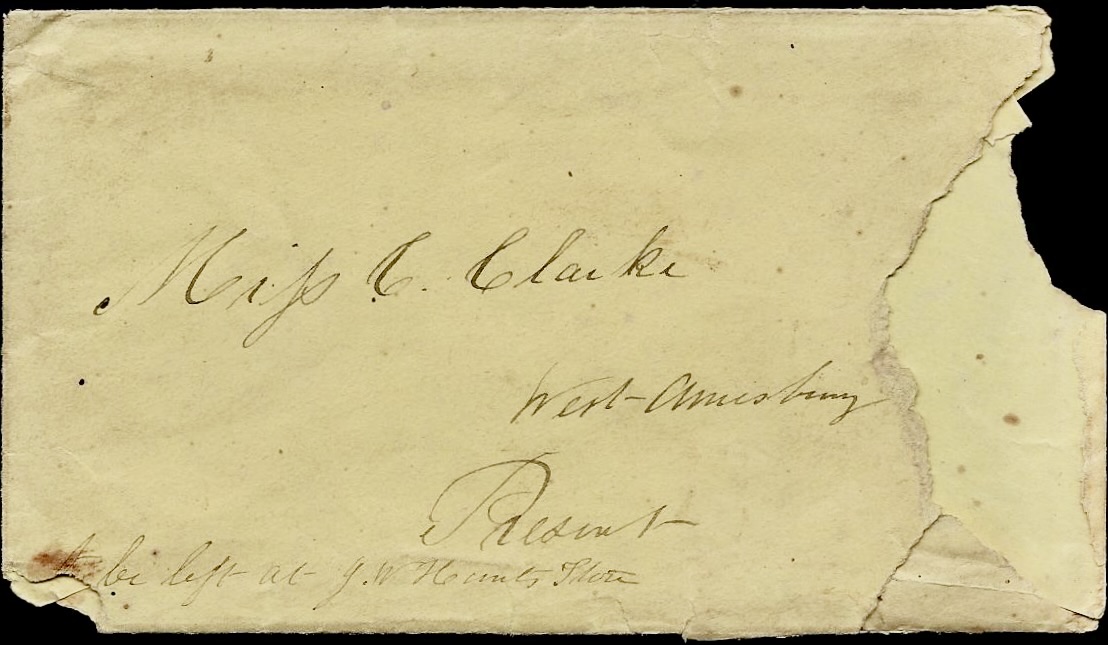 Miss C. Clarke
West Amesbury
Present
to be left at J. W. Hunts Store